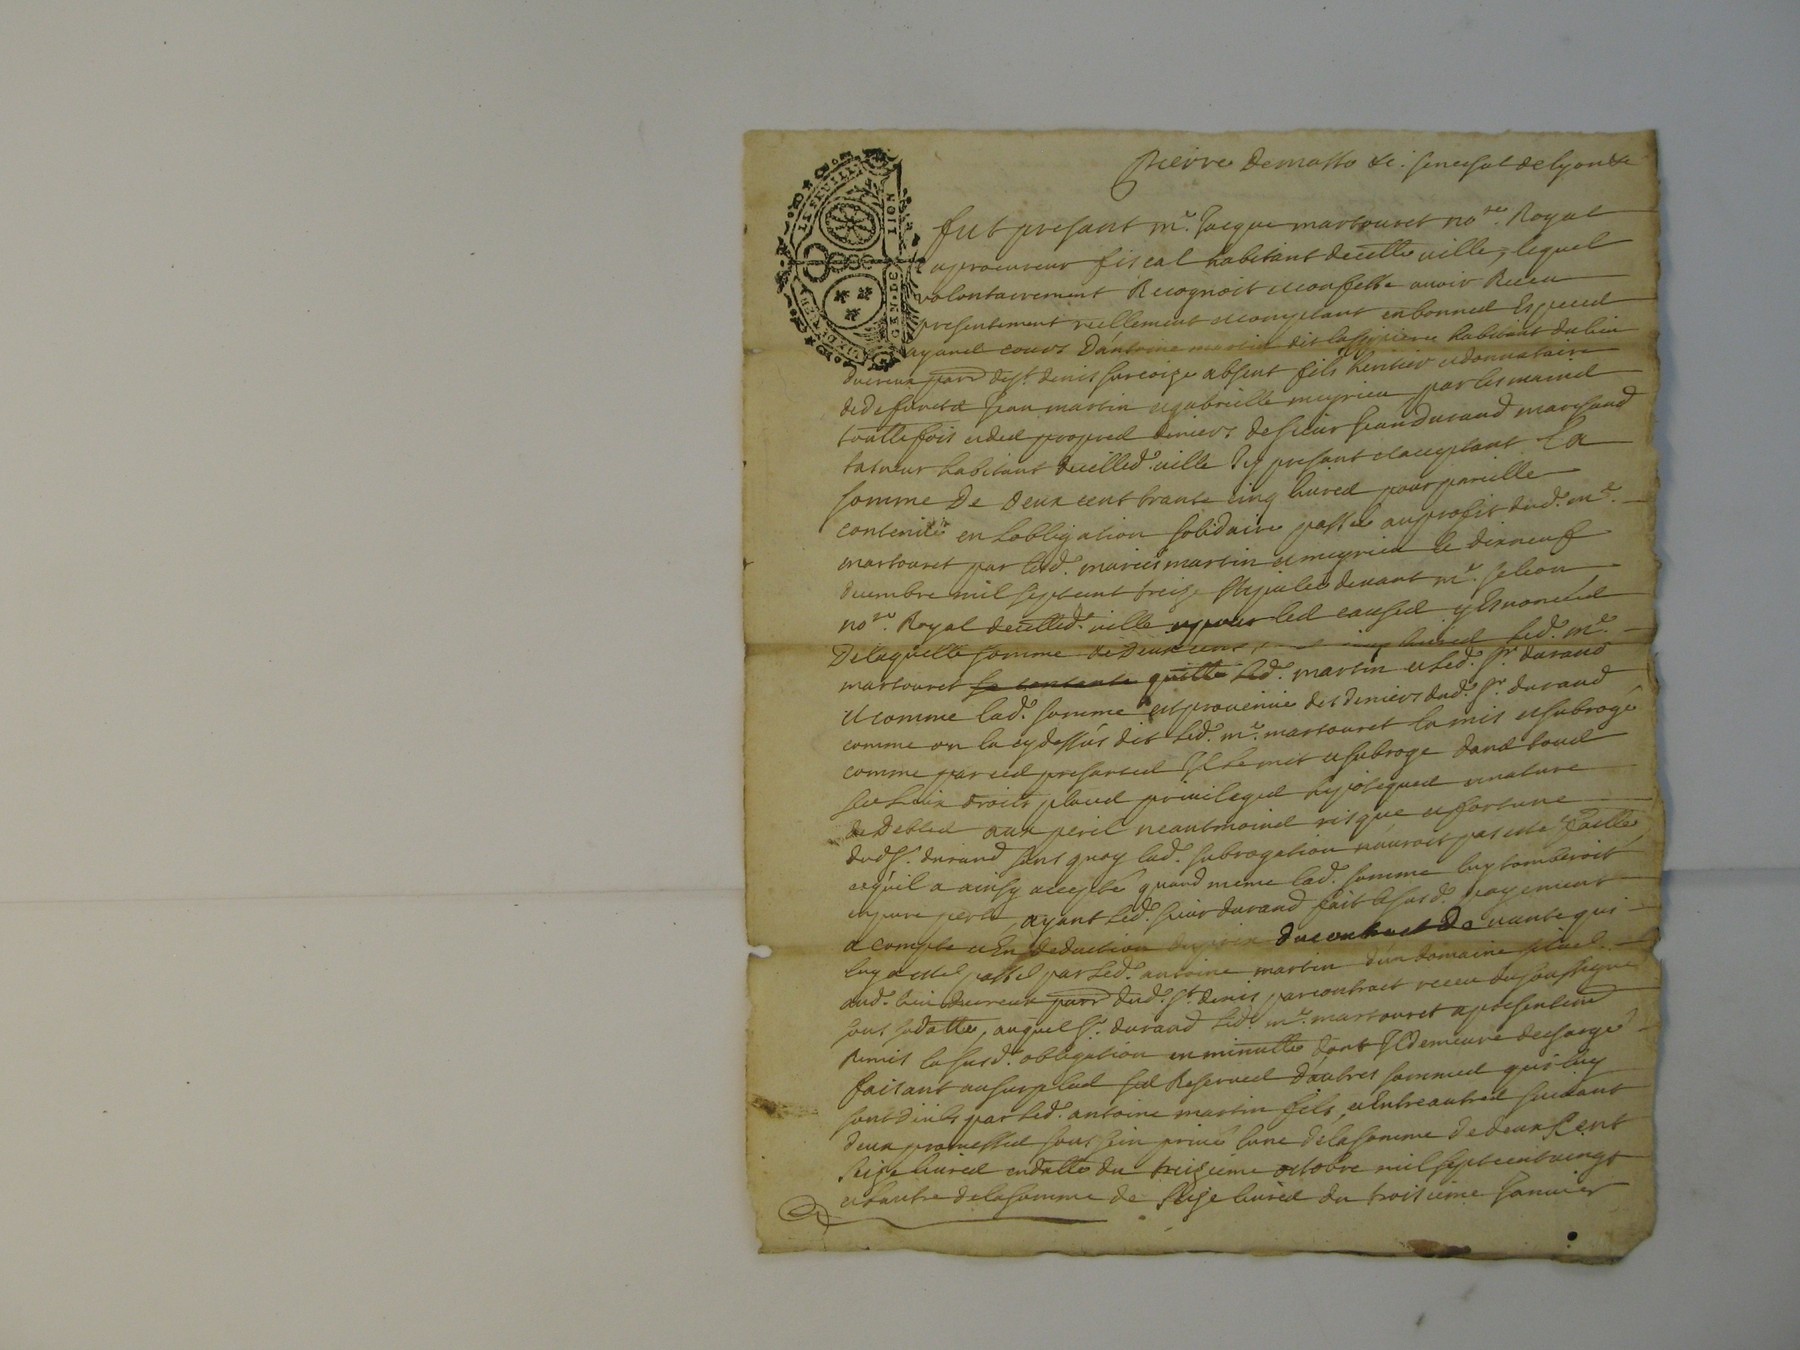 LA FEUILLE
SIX DEN
GEN.DE LION
Pierre Demasso &c. senechal de lyon &c
fut presant me. Jacque martouret nore. Royal
& procureur fiscal habitant decette ville, lequel
volontairement Recognoit & confesse avoir Receu
presentement reellement & comptant en bonnes Especes
ayant cours D'antoine martin dit habitant du lieu
ducreux parr de st. denis surcoize absent fils heritier & donnataire
de defuncts Jean martin & gabrielle meyrieu par les mains
touttefois & des propres deniers de sieur Jean Durand marchand
taneur habitant decetted. ville Icy presant & acceptant La
somme De Deux cent trante cinq livres pour pareille
contenue en Lobligation solidaire passée au profit dud. me.
martouret par lesd. mariés martin & meyrieu le dixneuf
decembre mil sept cent treize stipulée devant me.
nore. Royal decetted. ville & pour les causes y Enoncées
De laquelle somme de Deux cent livres led. me.
martouret se contente quitte led. martin & led. sr. durand
& comme lad. somme est provenue des deniers dud. sr. durand
comme on la cy dessus dit led. me. martouret la mis & subrogé
comme par ces presantes Il le met & subroge dans tous
ses droits places privileges hypoteques & nature
de Debtes aux peril neantmoins risque & fortune
dud sr. durand sans quoy lad. subrogation n'auroit pas esté faitte
ce qu'il a ainsy accepté quand meme lad. somme luy tomberoit
en pure perte ayant led. sieur durand fait le susd. payement
a compte & En Deduction du prix du contract De vante qui
luy a esté passé par led. antoine martin d'un domaine situé
aud. lieu ducreux parr dud. st. denis par contract receu du soussigné
sous sa datte, auquel sr. durand led. me. martouret a presentement
Remis la susd. obligation en minutte dont Il demeure dechargé
faisant au surplus ses Reserves d'autres sommes qui luy
sont Dües par led. antoine martin fils, & Entre autres suivant
deux promesses sous sein privé lune de la somme de deux cent
seize livres en datte du treizieme octobre mil sept cent vingt
& l'autre de la somme de seize livres du troisieme Janvier